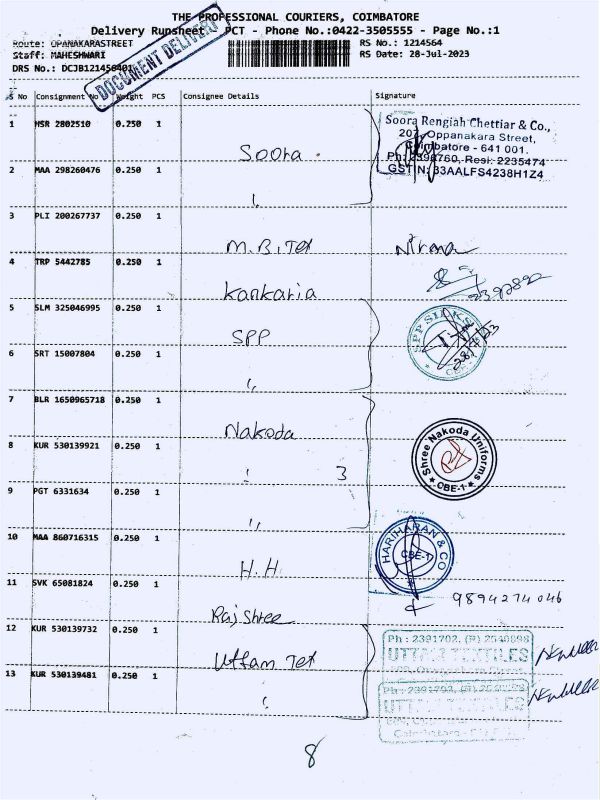 THE PROFESSIONAL COURIERS, COIMBATORE
Delivery Runsheet PCT - Phone No.:0422-3505555 - Page No.:1
Route: OPANAKARASTREET
RS No.: 1214564
Staff: MAHESHWARI
RS Date: 28-Jul-2023
DRS No.: DCJB121456401
DOCUMENT DELIVERY
S No Consignment No Weight PCS Consignee Details Signature
1 MSR 2802510 0.250 1 Soora
Soora Rengiah Chettiar & Co.,
207, Oppanakara Street,
Coimbatore - 641 001.
Ph: 2390760, Resi: 2235474
GST N: 33AALFS4238H1Z4
2 MAA 298260476 0.250 1
3 PLI 200267737 0.250 1 M.B.Tex Nirma
4 TRP 5442785 0.250 1 Kankaria
5 SLM 325046995 0.250 1 SPP
SPP SILKS
28/7/23
6 SRT 15007804 0.250 1
7 BLR 1650965718 0.250 1 Nakoda
Shree Nakoda Uniforms
CBE-1
8 KUR 530139921 0.250 1 3
9 PGT 6331634 0.250 1
10 MAA 860716315 0.250 1 H.H
HARIHARAN & CO
CBE-1
11 SVK 65081824 0.250 1 Rajshree 9894274046
12 KUR 530139732 0.250 1 Uttam Tex
Ph: 2391702, (R) 2540898
UTTAM TEXTILES
13 KUR 530139481 0.250 1
UTTAM TEXTILES
8